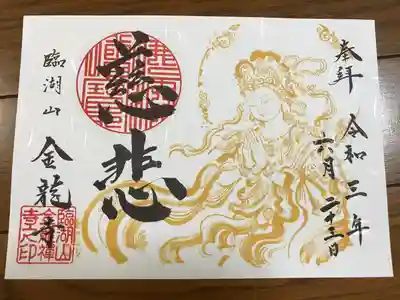 奉拝
令和三年
六月二十三日
慈悲
臨湖山
金龍寺
臨湖山
金龍禅
寺之印